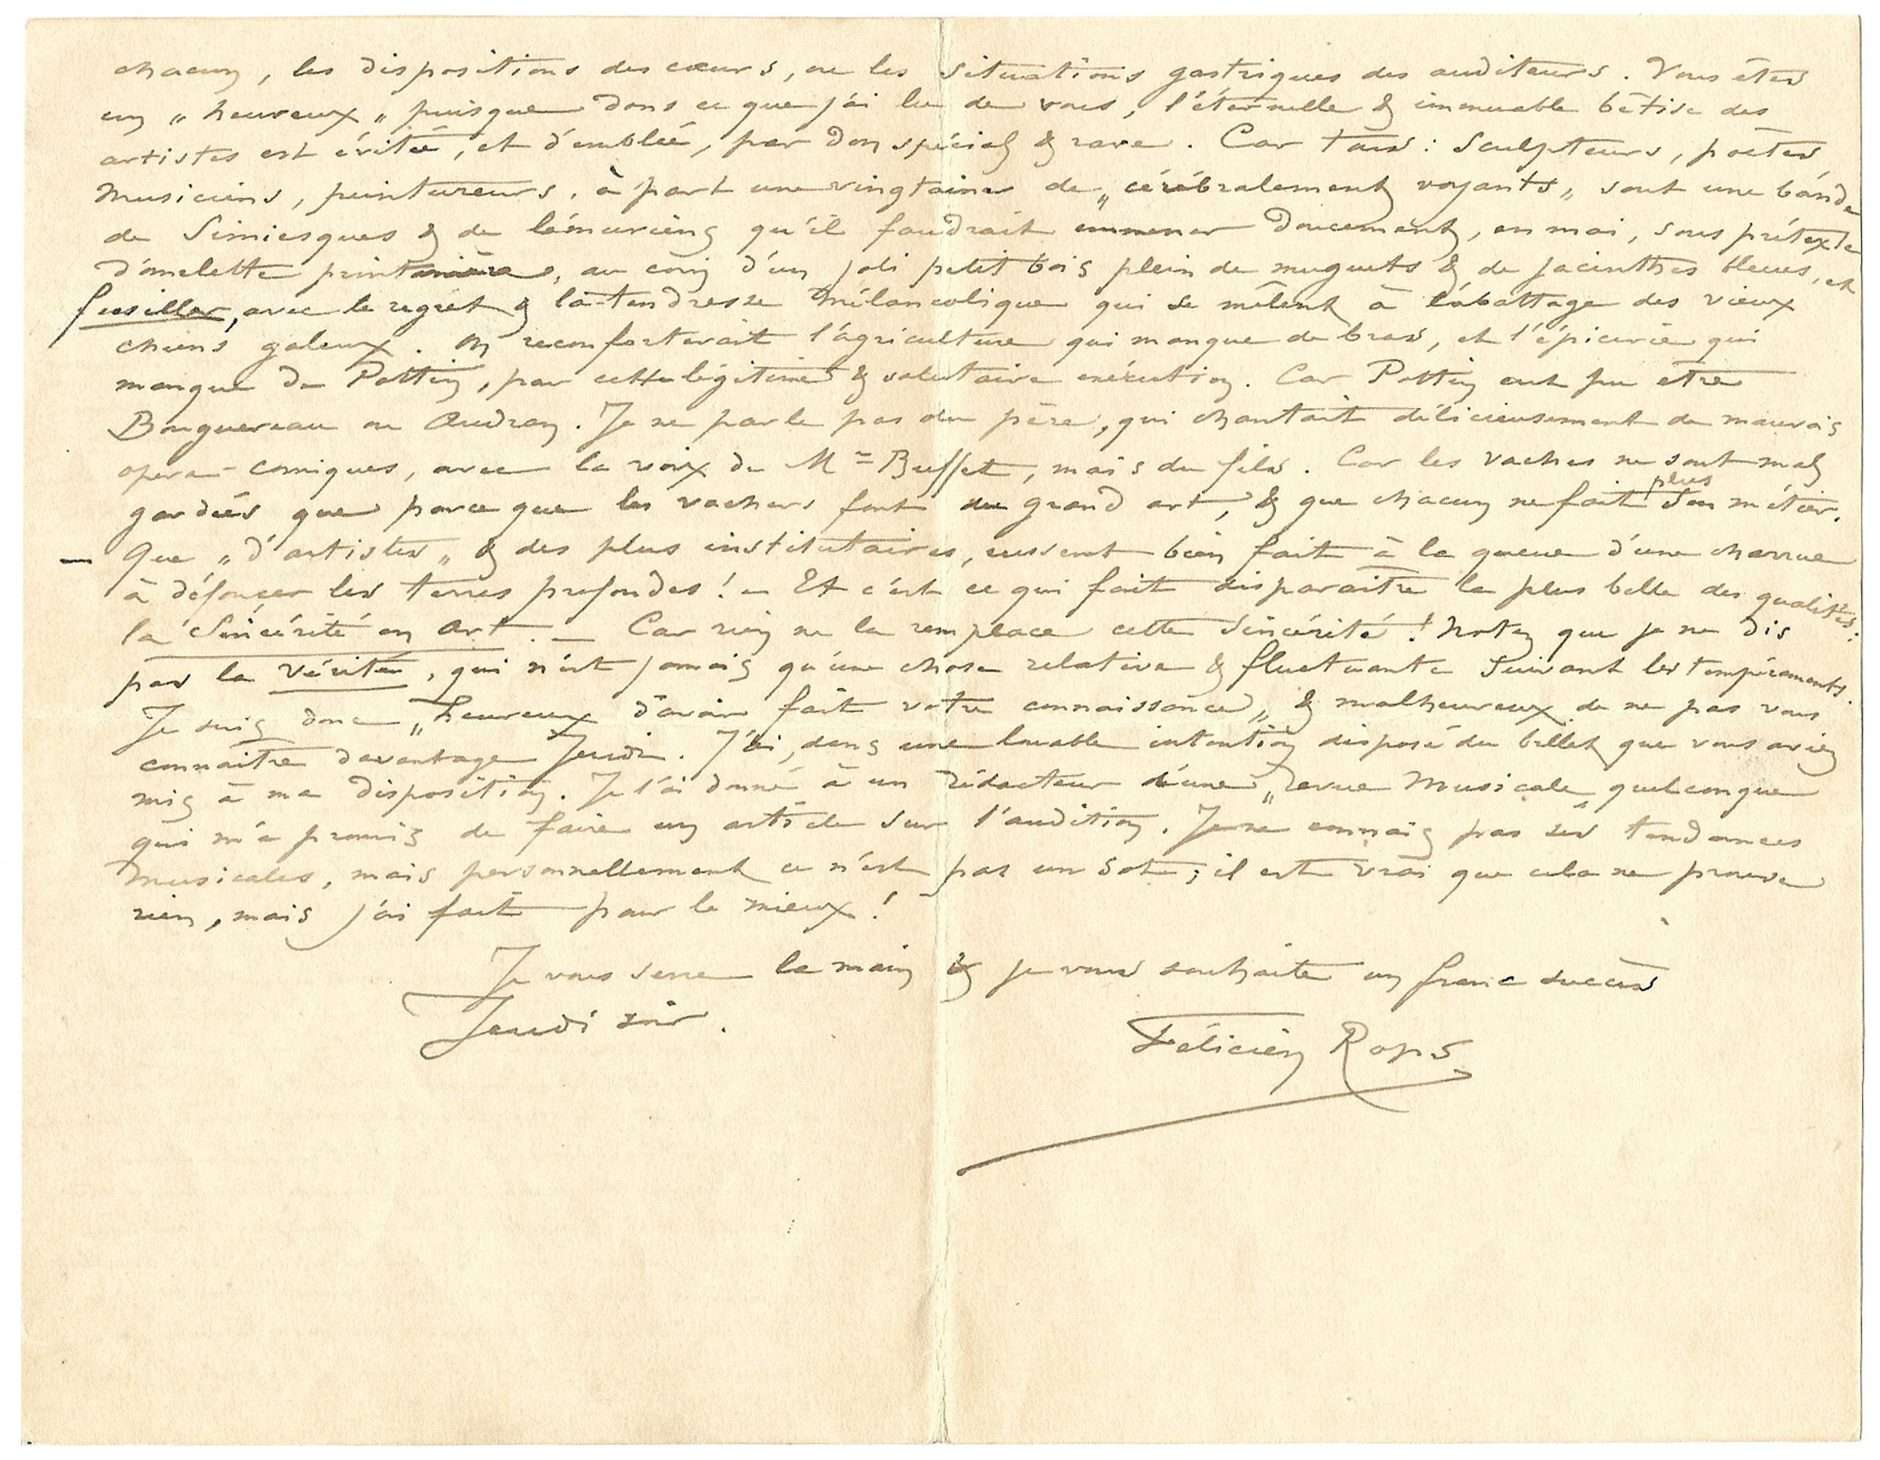 chacun, les dispositions des cœurs, ou les situations gastriques des auditeurs. Vous êtes
un „ heureux „ puisque dans ce que j'ai lu de vous, l'éternelle & immuable bêtise des
artistes est évitée, et d'emblée, par don spécial & rare. Car tous : Sculpteurs, poètes
Musiciens, peintureurs, à part une vingtaine de „ cérébralement voyants „ sont une bande
de Simiesques & de lémuriens qu'il faudrait emmener doucement, en mai, sous prétexte
d'omelette printanière, au coin d'un joli petit bois plein de muguets & de jacinthes bleues, et
fusiller, avec le regret & la tendresse mélancolique qui se mêlent à l'abattage des vieux
chiens galeux. On reconforterait l'agriculture qui manque de bras, et l'épicerie qui
manque de Pottin, par cette légitime & salutaire exécution. Car Pottin eut pu être
Bouguereau ou Audran. Je ne parle pas du père, qui chantait délicieusement de mauvais
opera-comiques, avec la voix de Mr Buffet, mais du fils. Car les vaches ne sont mal
gardées que parce que les vachers font du grand art, & que chacun ne fait plus son métier.
— Que „ d'artistes „ & des plus institutaires, eussent bien fait à la queue d'une charrue
à défoncer les terres profondes! — Et c'est ce qui fait disparaitre la plus belle des qualités:
la Sincérité en Art. — Car rien ne la remplace cette Sincérité! Notez que je ne dis
pas la vérité, qui n'est jamais qu'une chose relative & fluctuante suivant les tempéraments.
Je suis donc „ heureux d'avoir fait votre connaissance „ & malheureux de ne pas vous
connaitre davantage Jeudi. J'ai, dans une louable intention disposé du billet que vous aviez
mis à ma disposition. Je l'ai donné à un rédacteur d'une „ revue Musicale „ quelconque
qui m'a promis de faire un article sur l'audition. Je ne connais pas ses tendances
musicales, mais personnellement ce n'est pas un sot; il est vrai que cela ne prouve
rien, mais j'ai fait pour le mieux!
Je vous serre la main & je vous souhaite un franc succès
Jeudi soir.
Félicien Rops